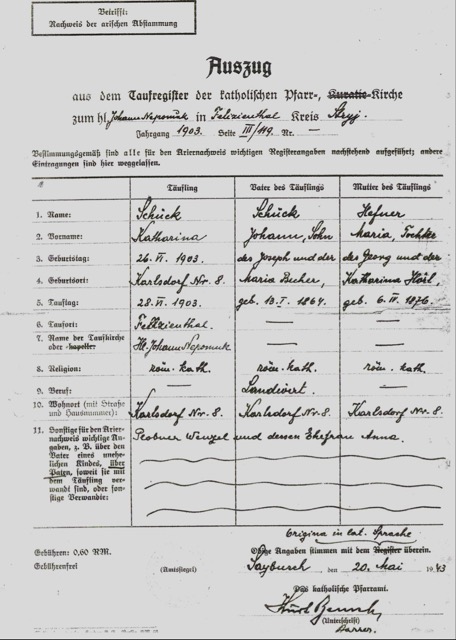 Betrifft:
Nachweis der arischen Abstammung
Auszug
aus dem Taufregister der katholischen Pfarr-, Kuratie-Kirche
zum hl. Johann Nepomuk in Felizienthal Kreis Stryj.
Jahrgang 1903. Seite III/119. Nr. —
Bestimmungsgemäß sind alle für den Ariernachweis wichtigen Registerangaben nachstehend aufgeführt; andere
Eintragungen sind hier weggelassen.
Täufling Vater des Täuflings Mutter des Täuflings
1. Name: Schück Schück Hefner
2. Vorname: Katharina Johann, Sohn Maria, Tochter
3. Geburtstag: 26. VI. 1903. des Joseph und der des Georg und der
4. Geburtsort: Karlsdorf Nr. 8. Maria Becher, Katharina Hösl,
5. Tauftag: 28. VI. 1903. geb. 13. I. 1864. geb. 6. IV. 1876.
6. Taufort: Felizienthal. — —
7. Name der Taufkirche
oder -kapelle: Hl. Johann Nepomuk — —
8. Religion: röm. kath. röm. kath. röm. kath.
9. Beruf: — Landwirt. —
10. Wohnort (mit Straße
und Hausnummer): Karlsdorf Nr. 8. Karlsdorf Nr. 8. Karlsdorf Nr. 8.
11. Sonstige für den Arier-
nachweis wichtige An-
gaben, z. B. über den
Vater eines unehe-
lichen Kindes, über
Paten, soweit sie mit
dem Täufling ver-
wandt sind, oder son-
stige Verwandte:
Wenzel und dessen Ehefrau Anna.
Original in lat. Sprache
Gebühren: 0,60 RM. Obige Angaben stimmen mit dem Register überein.
Gebührenfrei (Amtssiegel) Saybusch, den 20. Mai 1943
Das katholische Pfarramt.
(Unterschrift)